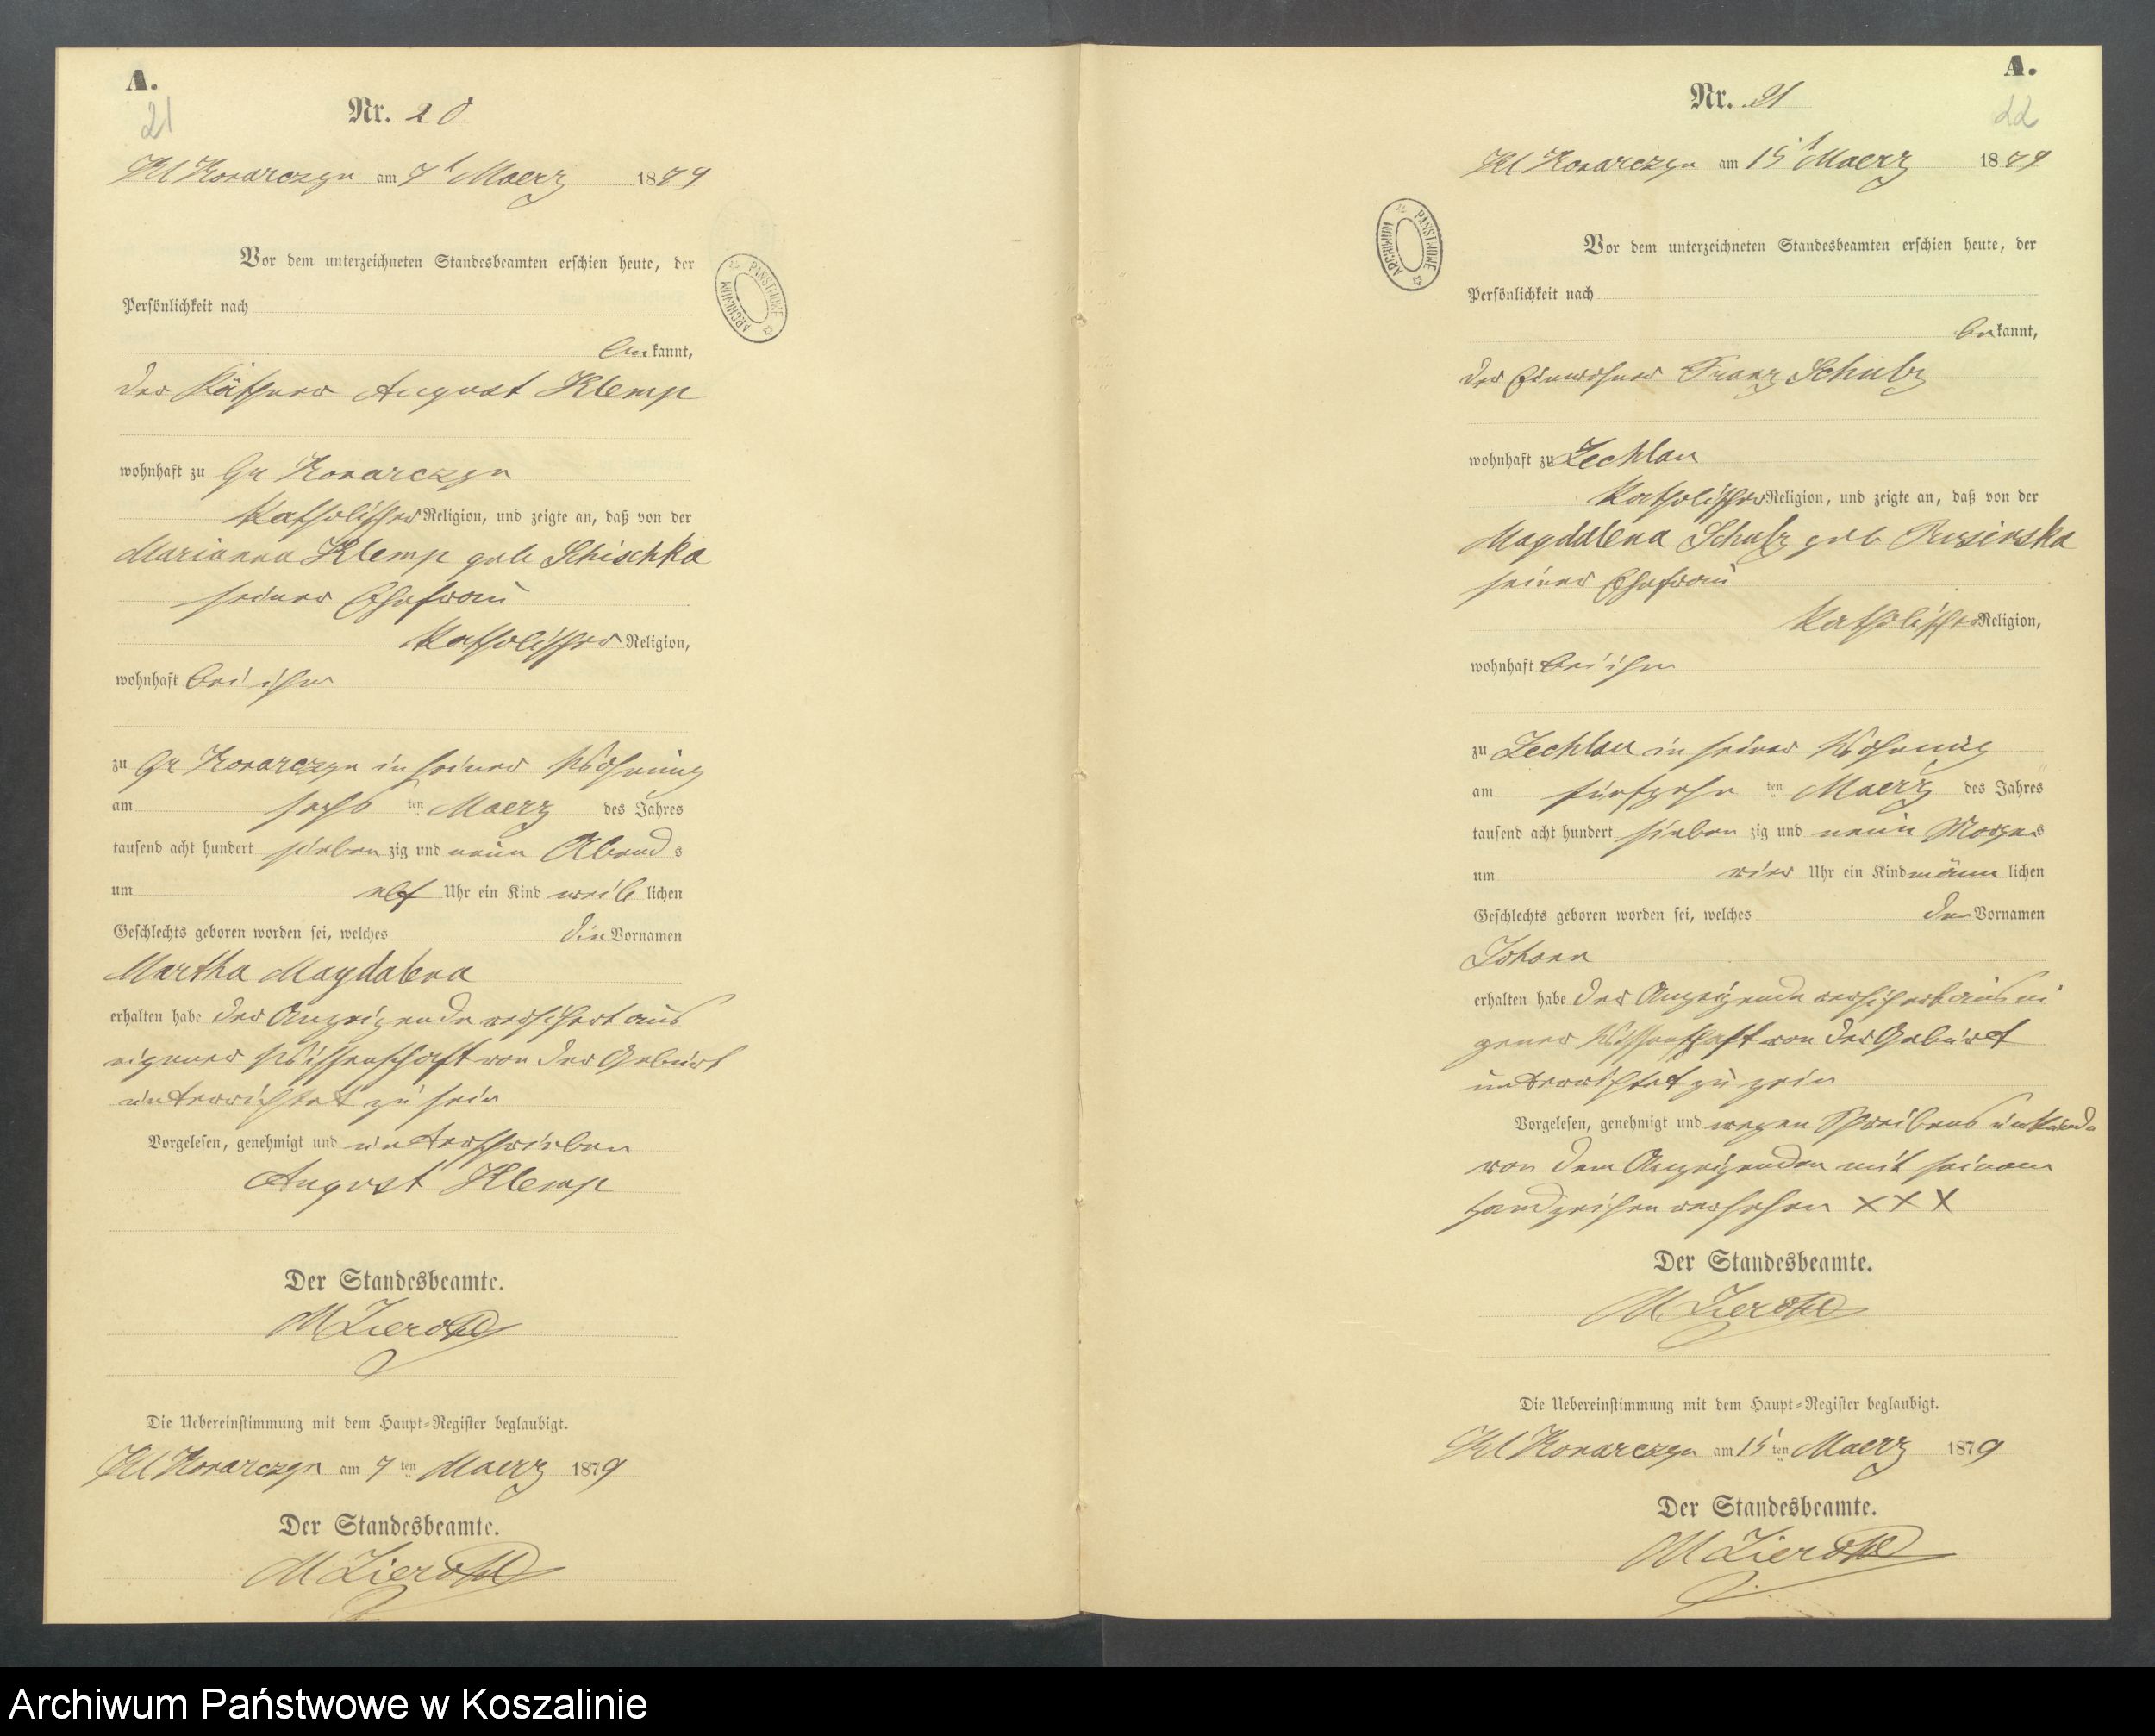 A.
21
Nr. 20
Kl Konarczyn am 7t Maerz 1879
Vor dem unterzeichneten Standesbeamten erschien heute, der
Persönlichkeit nach
bekannt,
der Käthner August Klemp
wohnhaft zu Gr Konarczyn
katholischer Religion, und zeigte an, daß von der
Marianna Klemp geb Schischka
seiner Ehefrau
katholischer Religion,
wohnhaft bei ihm
zu Gr Konarczyn in seiner Wohnung
am sechs ten Maerz des Jahres
tausend acht hundert sieben zig und neun Abends
um elf Uhr ein Kind weib lichen
Geschlechts geboren worden sei, welches die Vornamen
Martha Magdalena
erhalten habe der Anzeigende versichert aus
eigener Wissenschaft von der Geburt
unterrichtet zu sein
Vorgelesen, genehmigt und unterschrieben
August Klemp
Der Standesbeamte.
M Zieroth
Die Uebereinstimmung mit dem Haupt-Register beglaubigt.
Kl Konarczyn am 7 ten Maerz 1879
Der Standesbeamte.
M Zieroth
ARCHIWUM PAŃSTWOWE
A.
22
Nr. 21
Kl Konarczyn am 15t Maerz 1879
Vor dem unterzeichneten Standesbeamten erschien heute, der
Persönlichkeit nach
bekannt,
der Einwohner Franz Schulz
wohnhaft zu Zechlau
katholischer Religion, und zeigte an, daß von der
Magdalena Schulz geb
seiner Ehefrau
katholischer Religion,
wohnhaft bei ihm
zu Zechlau in seiner Wohnung
am fünfzehn ten Maerz des Jahres
tausend acht hundert sieben zig und neun Morgens
um vier Uhr ein Kind männ lichen
Geschlechts geboren worden sei, welches den Vornamen
Johann
erhalten habe der Anzeigende versichert aus ei
gener Wissenschaft von der Geburt
unterrichtet zu sein
Vorgelesen, genehmigt und wegen Schreibens unkunde
von dem Anzeigenden mit seinem
Handzeichen versehen XXX
Der Standesbeamte.
M Zieroth
Die Uebereinstimmung mit dem Haupt-Register beglaubigt.
Kl Konarczyn am 15 ten Maerz 1879
Der Standesbeamte.
M Zieroth
ARCHIWUM PAŃSTWOWE
Archiwum Państwowe w Koszalinie